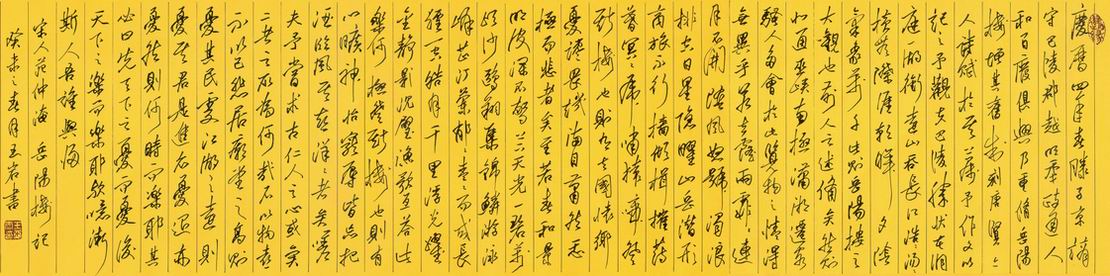 慶曆四年春滕子京謫
守巴陵郡越明年政通人
和百廢俱興乃重脩岳陽
樓增其舊制刻唐賢今
人詩賦於其上屬予作文以
記之予觀夫巴陵勝狀在洞
庭一湖銜遠山吞長江浩浩湯湯
橫無際涯朝暉夕陰
氣象萬千此則岳陽樓之
大觀也前人之述備矣然則
北通巫峽南極瀟湘遷客
騷人多會於此覽物之情得
無異乎若夫霪雨霏霏連
月不開陰風怒號濁浪
排空日星隱曜山岳潛形
商旅不行檣傾楫摧薄
暮冥冥虎嘯猿啼登
斯樓也則有去國懷鄉
憂讒畏譏滿目蕭然感
極而悲者矣至若春和景
明波瀾不驚上下天光一碧萬
頃沙鷗翔集錦鱗游泳
岸芷汀蘭郁郁青青而或長
煙一空皓月千里浮光躍
金靜影沉璧漁歌互答此
樂何極登斯樓也則有
心曠神怡寵辱皆忘把
酒臨風其喜洋洋者矣嗟
夫予嘗求古仁人之心或異
二者之為何哉不以物喜
不以己悲居廟堂之高則
憂其民處江湖之遠則
憂其君是進亦憂退亦
憂然則何時而樂耶其
必曰先天下之憂而憂後
天下之樂而樂耶歟噫微
斯人吾誰與歸
宋人范仲淹岳陽樓記
春月王君書